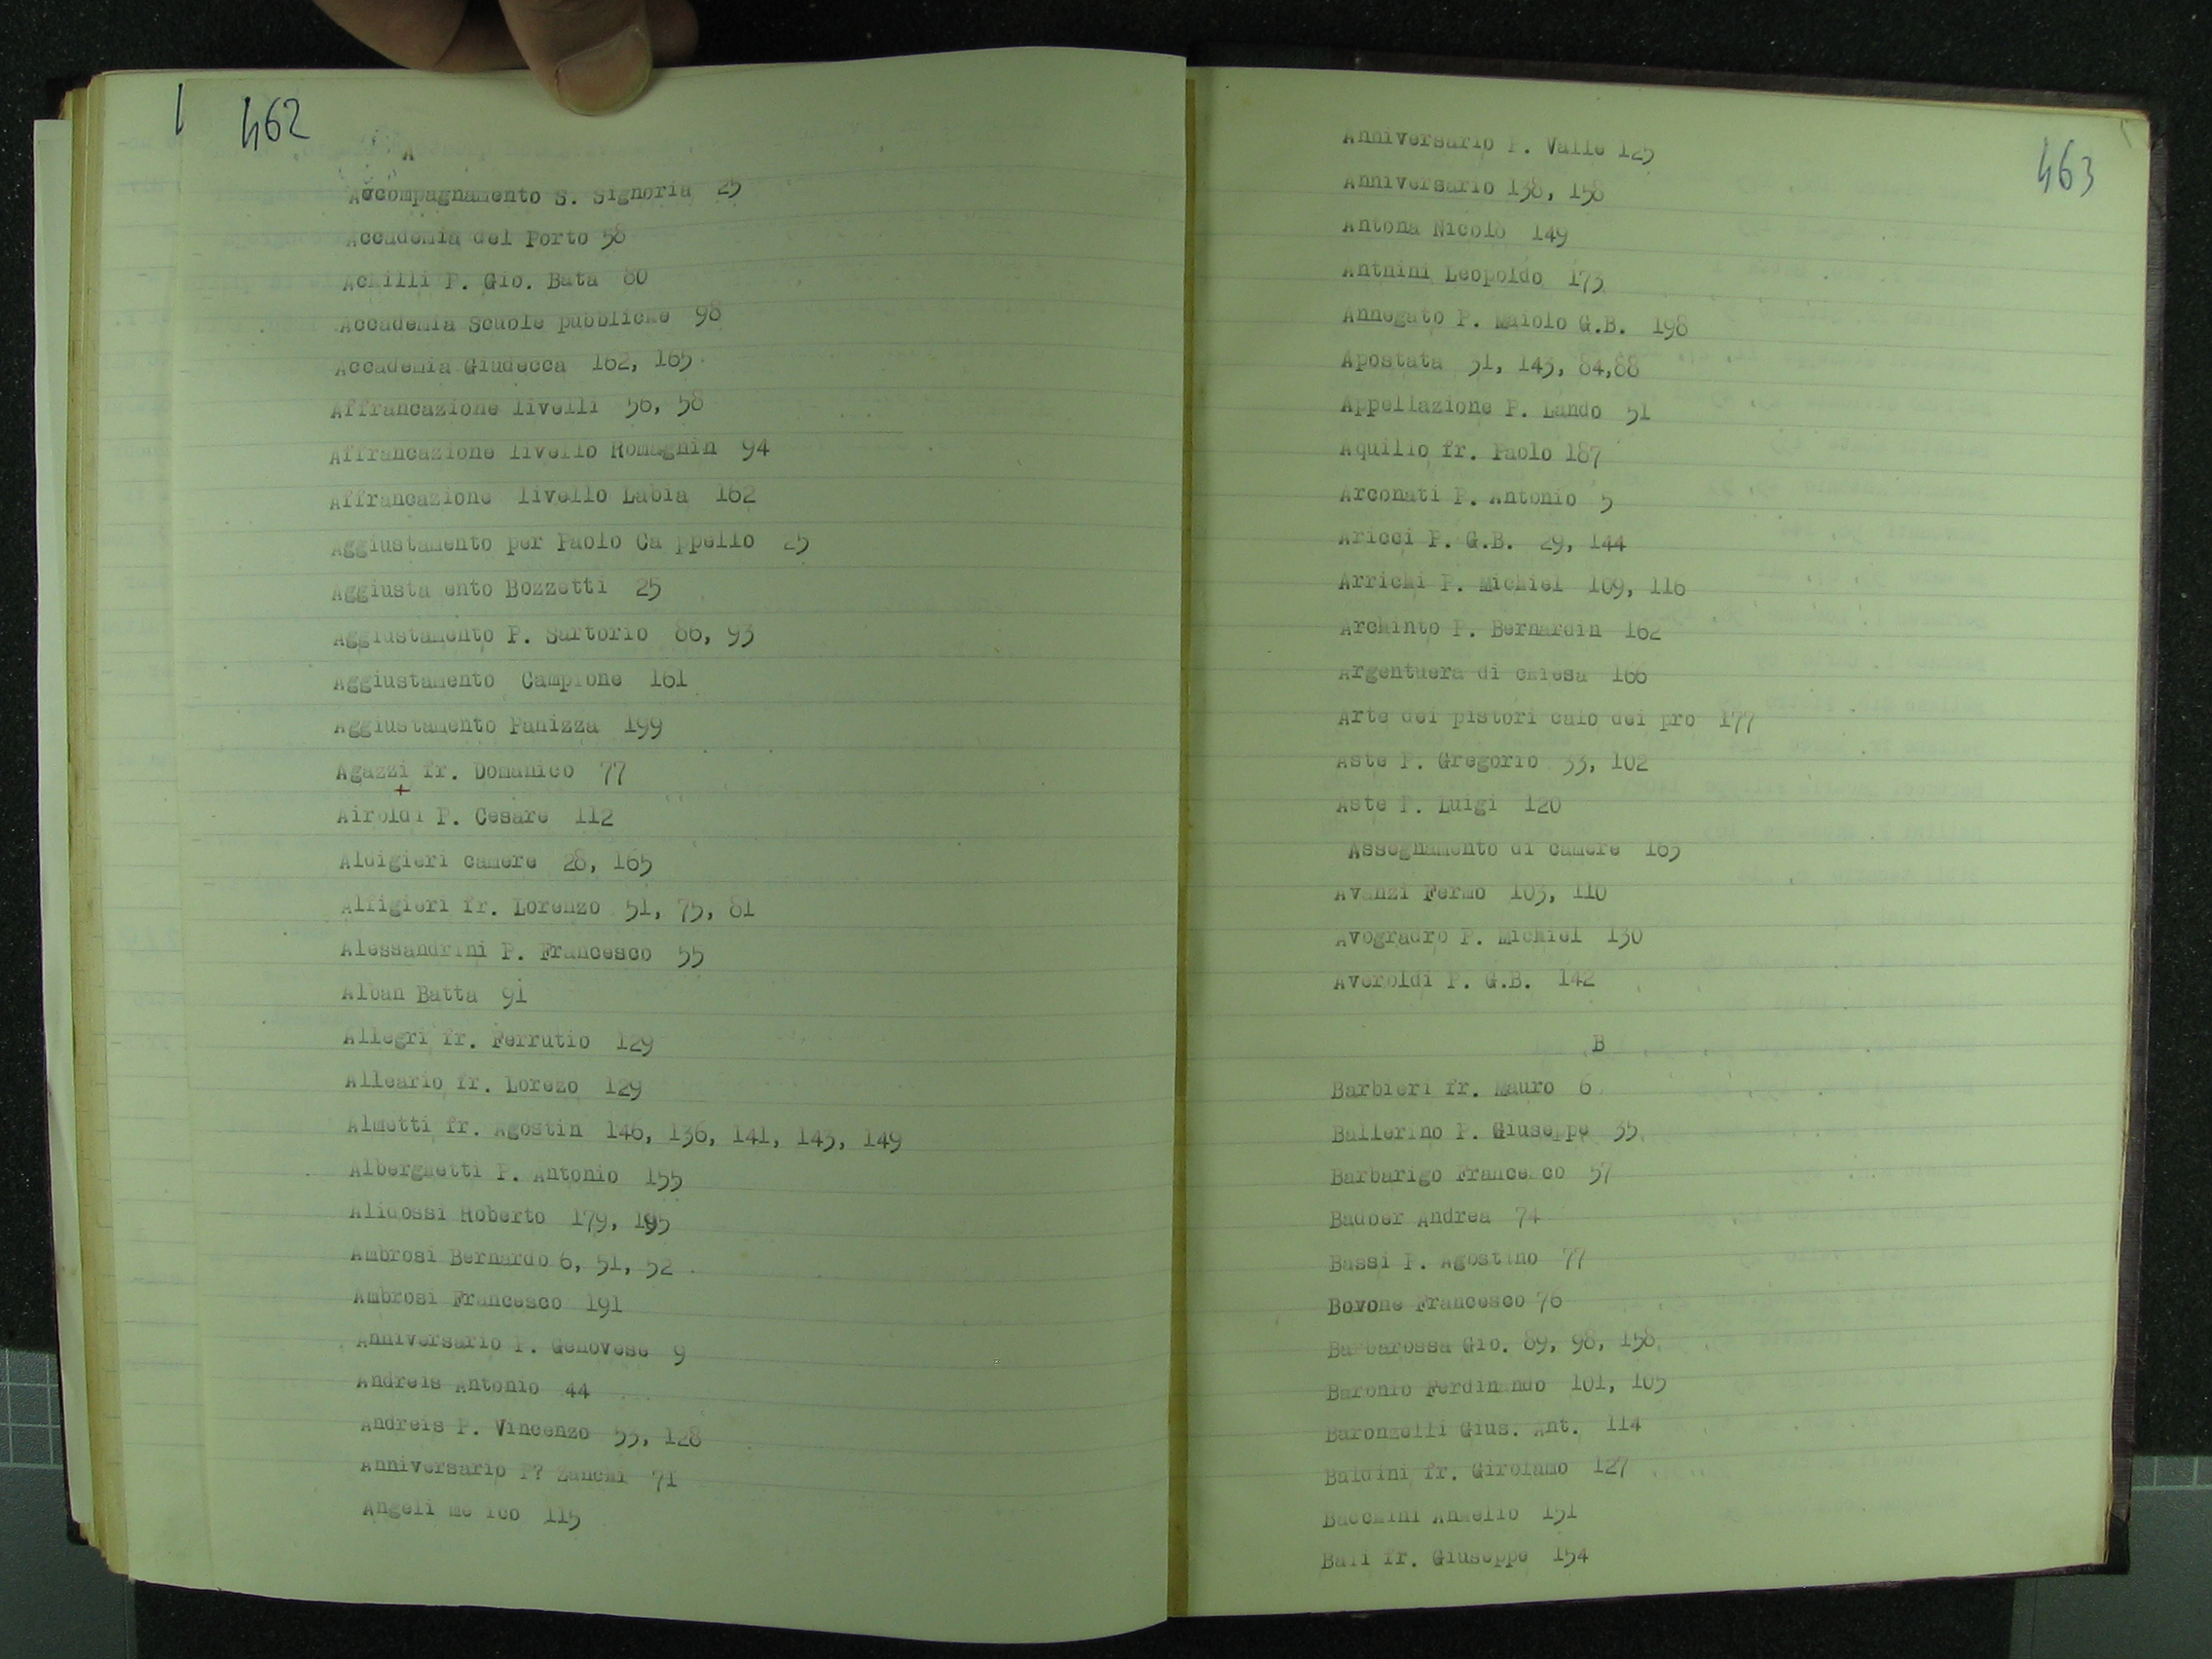 462
A
Accompagnamento S. Signoria 25
Accademia del Porto 58
Achilli P. Gio. Bata 80
Accademia Scuole pubbliche 98
Accademia Giudecca 162, 165
Affrancazione livelli 56, 58
Affrancazione livello Romagnin 94
Affrancazione livello Labia 162
Aggiustamento per Paolo Ca ppello 25
Aggiusta ento Bozzetti 25
Aggiustamento P. Sartorio 86, 93
Aggiustamento Campione 161
Aggiustamento Panizza 199
Agazzi fr. Domanico 77
+
Airoldi P. Cesare 112
Aldigieri camere 28, 165
Alfigieri fr. Lorenzo 51, 75, 81
Alessandrini P. Francesco 55
Alban Batta 91
Allegri fr. Ferrutio 129
Alleario fr. Lorezo 129
Almetti fr. Agostin 146, 136, 141, 143, 149
Alberghetti P. Antonio 155
Alidossi Roberto 179, 195
Ambrosi Bernardo 6, 51, 52
Ambrosi Francesco 191
Anniversario P. Genovese 9
Andreis Antonio 44
Andreis P. Vincenzo 53, 128
Anniversario P? Zanchi 71
Angeli me ico 115
463
Anniversario P. Valle 125
Anniversario 138, 158
Antona Nicolò 149
Antnini Leopoldo 173
Annegato P. Maiolo G.B. 198
Apostata 31, 143, 84,88
Appellazione P. Lando 51
Aquilio fr. Paolo 187
Arconati P. Antonio 5
Aricci P. G.B. 29, 144
Arrichi P. Michiel 109, 116
Archinto P. Bernardin 162
Argentuera di chiesa 166
Arte dei pistori calo dei pro 177
Aste P. Gregorio 33, 102
Aste P. Luigi 120
Assegnamento di camere 165
Avanzi Fermo 103, 110
Avogradro P. Michiel 130
Averoldi P. G.B. 142
B
Barbieri fr. Mauro 6
Ballerino P. Giuseppe 35
Barbarigo France co 57
Badoer Andrea 74
Bassi P. Agostino 77
Bovone Francesco 76
Barbarossa Gio. 89, 98, 158
Baronio Ferdinando 101, 105
Baronzelli Gius. Ant. 114
Baldini fr. Girolamo 127
Bacchini 151
Bali fr. Giuseppe 154